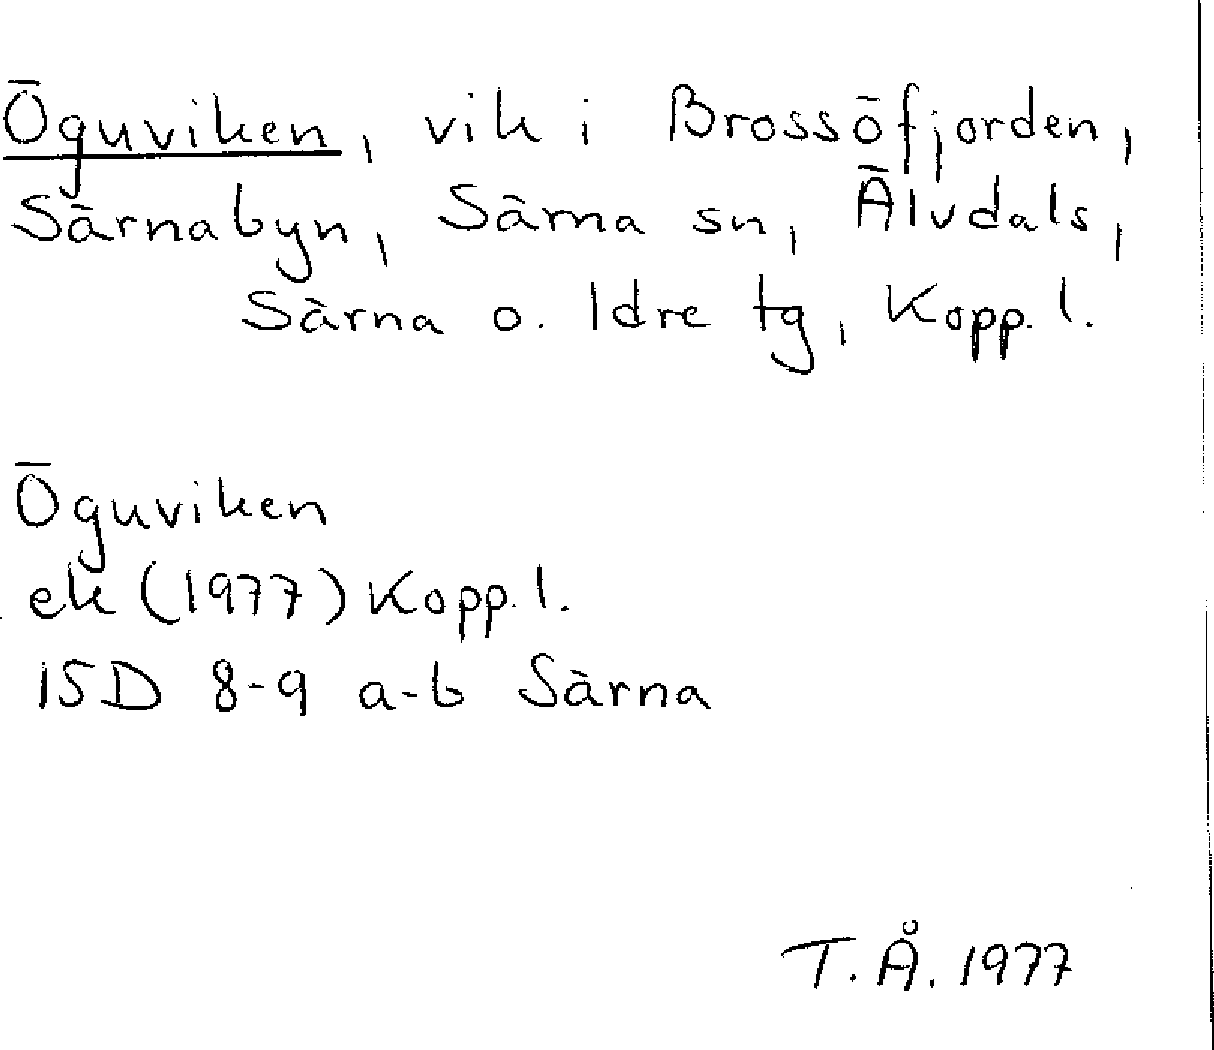 Öguviken, vik i Brossöfjorden,
Särnabyn, Särna sn, Älvdals,
Särna o. Idre tg, Kopp. l.
Öguviken
ek (1977) Kopp. l.
15D 8-9 a-b Särna
T. Å. 1977